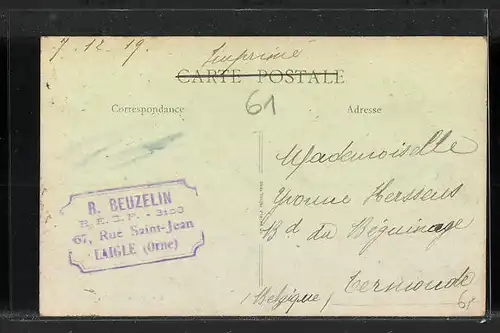 7.12.19.
Imprimé
CARTE POSTALE
61
Correspondance
Adresse
R. BEUZELIN
B. E. C. F. - 3100
67, Rue Saint-Jean
LAIGLE (Orne)
Mademoiselle
Yvonne Herssens
Bd du Béguinage
Termonde
(Belgique)
61